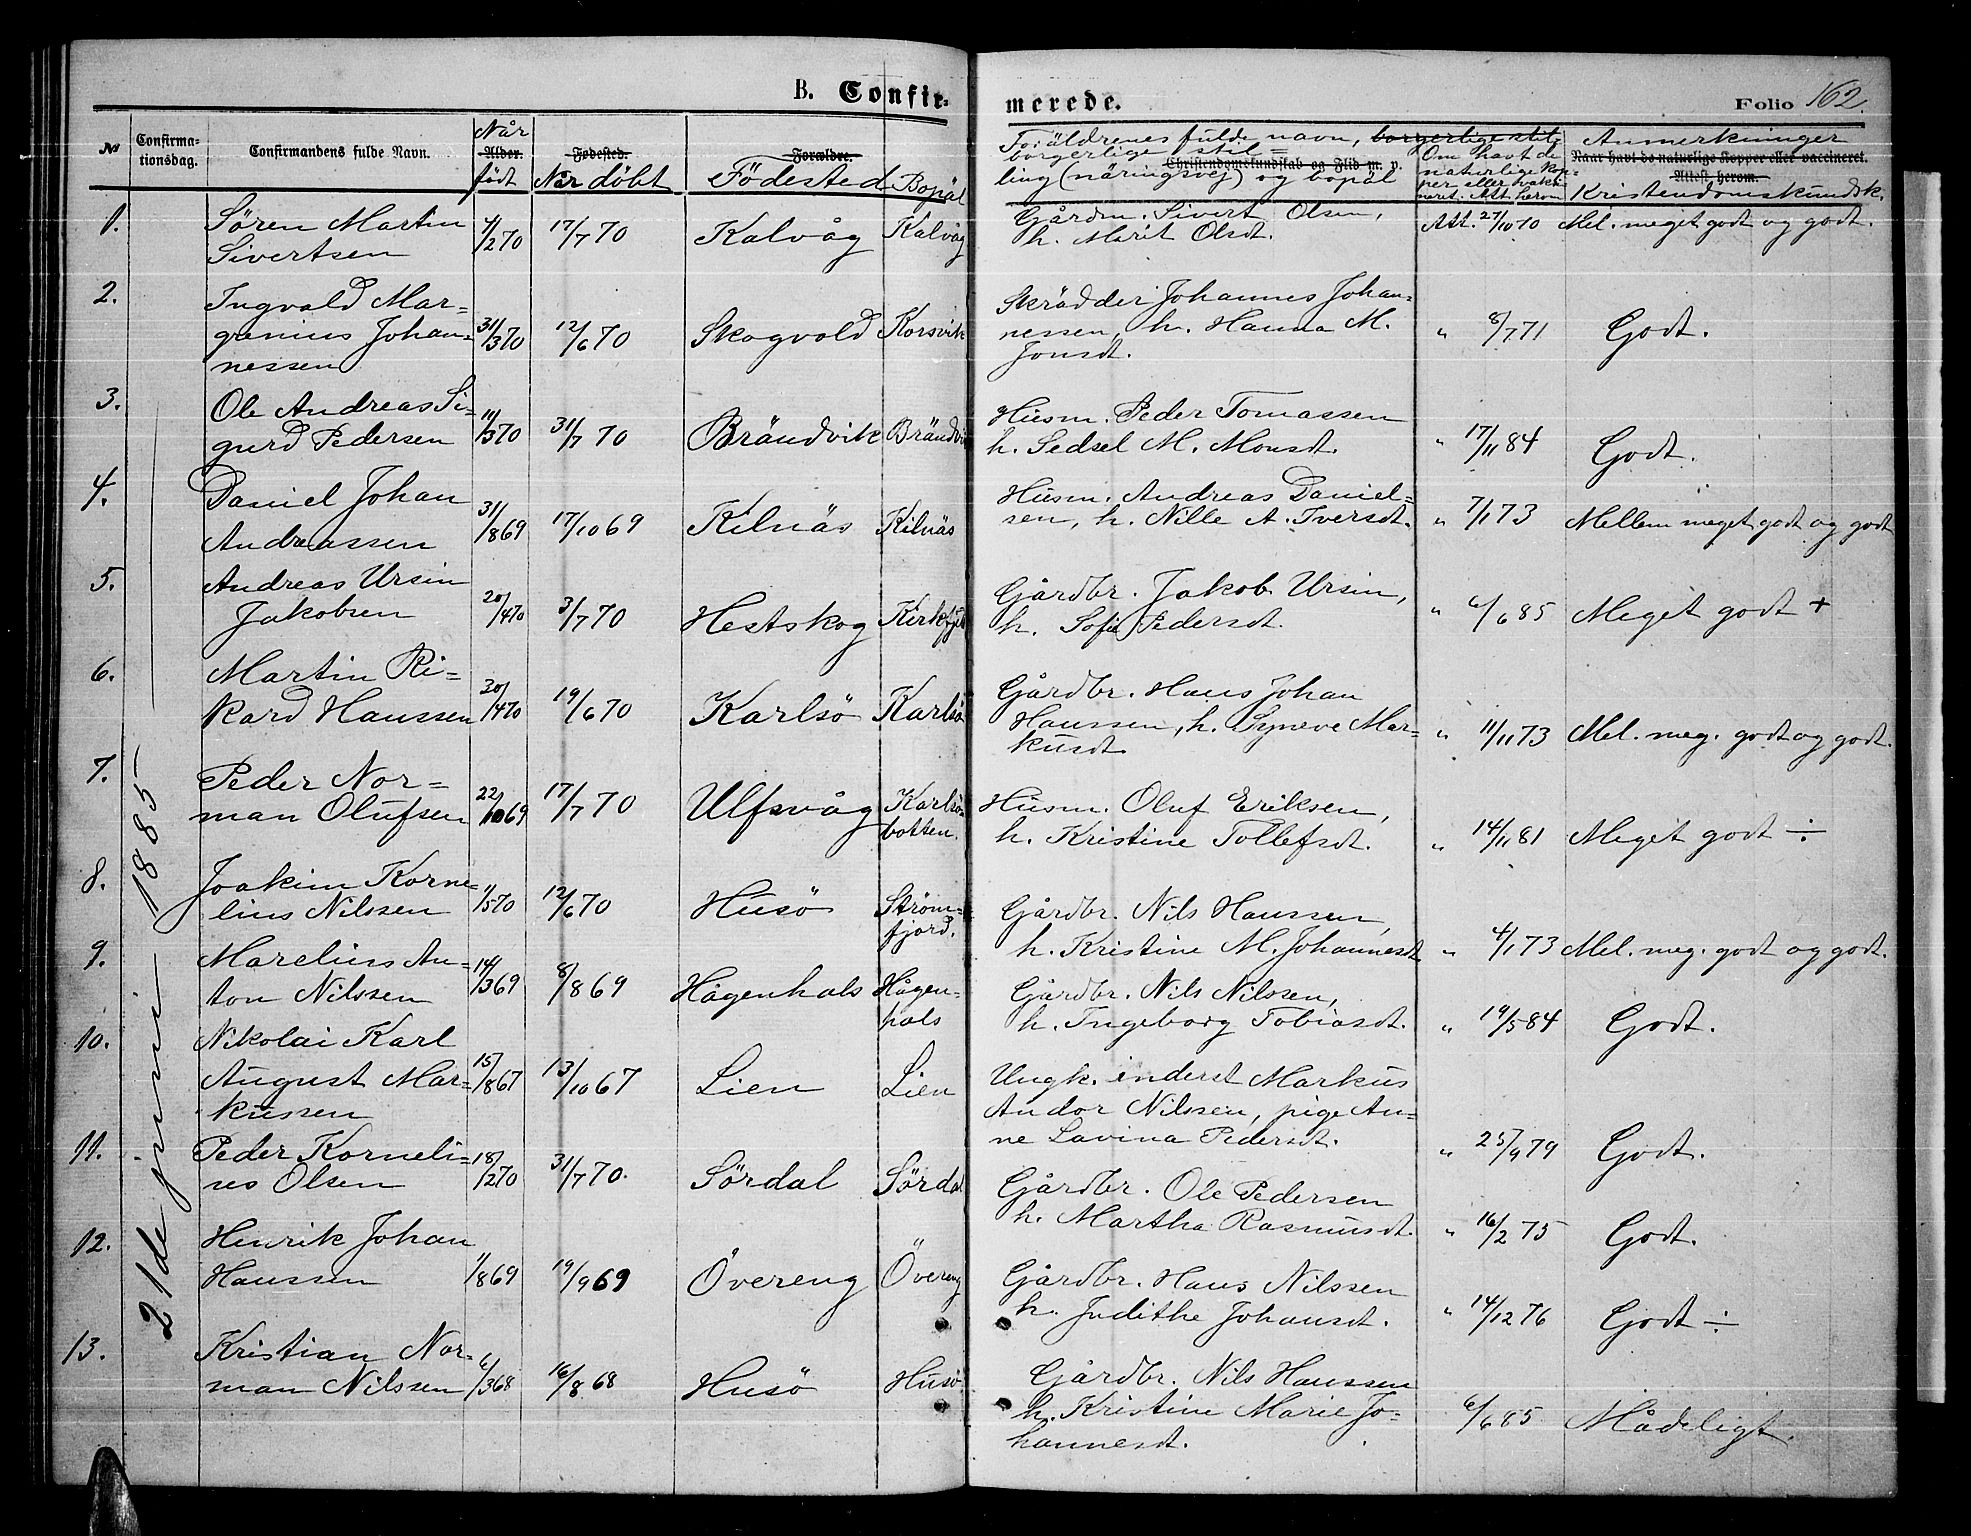 B. Confir-
merede.
Folio 162.
No
Confirma-
tionsdag.
Confirmandens fulde Navn.
Når
Alder.
födt
Fødested.
Når döbt
Forældre.
Födested
Bopäl
Foräldrenes fulde navn, borgerlige stil
borgerlige stil=
Christendomskundskab og Flid m. v.
ling (näringsvej) og bopäl
Om havt de
naturlige kop=
per eller vakci=
neret. Att. herom
Anmerkninger
Naar havt de naturlige Kopper eller vaccineret.
Attest herom.
Kristendomskundsk.
21de juni 1885
1. Sören Martin
Sivertsen 4/2 70 17/7 70 Kalvåg Kalvåg Gårdm. Sivert Olsen,
h. Marit Olsdt. Att. 27/10 70 Mel. meget godt og godt.
2. Ingvald Mar=
grenius Johan=
nessen 31/3 70 12/6 70 Skogvold Korsvik Skrädder Johannes Johan=
nessen, h. Hanna M.
Jonsdt. " 8/7 71 Godt.
3. Ole Andreas Si=
gurd Pedersen 11/3 70 31/7 70 Brändvik Brändvik Husm. Peder Tomassen
h. Sedsel M. Monsdt. " 17/11 84 Godt.
4. Daniel Johan
Andreassen 31/8 69 17/10 69 Kilnäs Kilnäs Husm. Andreas Daniel=
sen, h. Nille A. Iversdt. " 7/1 73 Mellem meget godt og godt
5. Andreas Ursin
Jakobsen 20/4 70 3/7 70 Hestskog Gårdbr. Jakob Ursin,
h. Sofie Pedersdt. " 6/6 85 Meget godt +
6. Martin Ri=
kard Hanssen 20/4 70 19/6 70 Karlsö Karlsö Gårdbr. Hans Johan
Hanssen, h. Syneve Mar=
kusdt. " 11/11 73 Mel. meg. godt og godt.
7. Peder Nor=
man Olufsen 22/10 69 17/7 70 Ulfsvåg Karlsö=
botten. Husm. Oluf Eriksen,
h. Kristine Tollefsdt. " 14/11 81 Meget godt ÷
8. Joakim Korne=
lius Nilssen 1/5 70 12/6 70 Husö Ström=
fjord. Gårdbr. Nils Hanssen,
h. Kristine M. Johannesdt " 4/1 73 Mel. meg. godt og godt.
9. Marelius An=
ton Nilssen 14/3 69 8/8 69 Hågenhals Hågen=
hals Gårdbr. Nils Nilssen,
h. Ingeborg Tobiasdt. " 19/5 84 Godt.
10. Nikolai Karl
August Mar=
kussen 15/8 67 13/10 67 Lien Lien Ungk. inderst Markus
Andor Nilssen, pige An=
ne Lavina Pedersdt. " 25/9 79 Godt.
11. Peder Korneli=
us Olsen 18/2 70 31/7 70. Sördal Sördal Gårdbr. Ole Pedersen
h. Martha Rasmusdt. " 16/2 75 Godt.
12. Henrik Johan
Hanssen 1/8 69 19/9 69 Övereng Övereng Gårdbr. Hans Nilssen
h. Judithe Johansdt. " 14/12 76 Godt ÷
13. Kristian Nor=
man Nilssen 6/3 68 16/8 68 Husö Husö Gårdbr. Nils Hanssen
h. Kristine Marie Jo=
hannesdt. 6/6 85 Mådeligt.